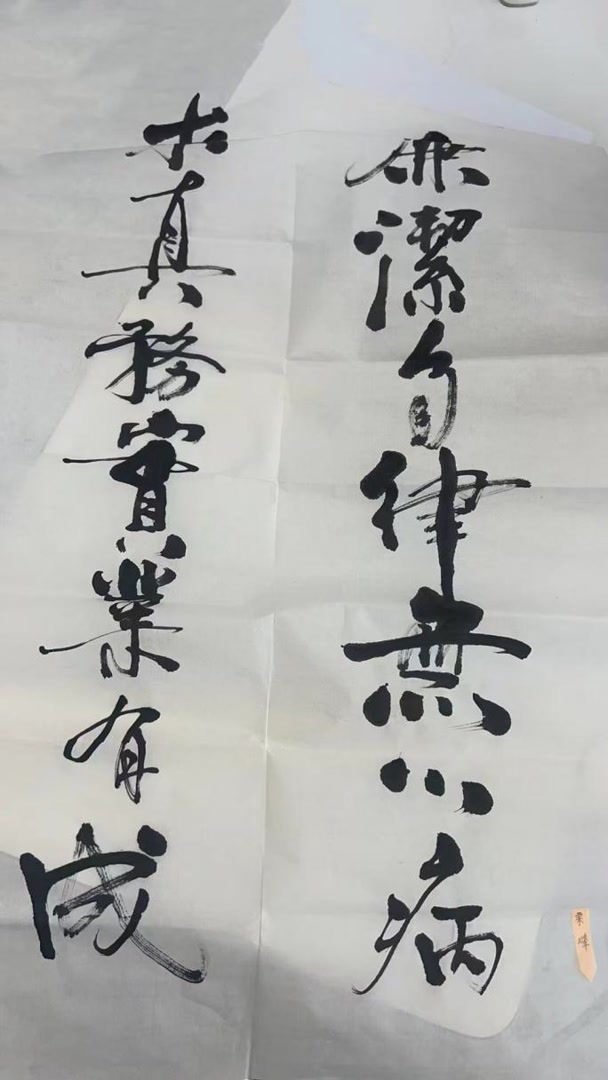 廉潔自律無心病
求真務實業有成